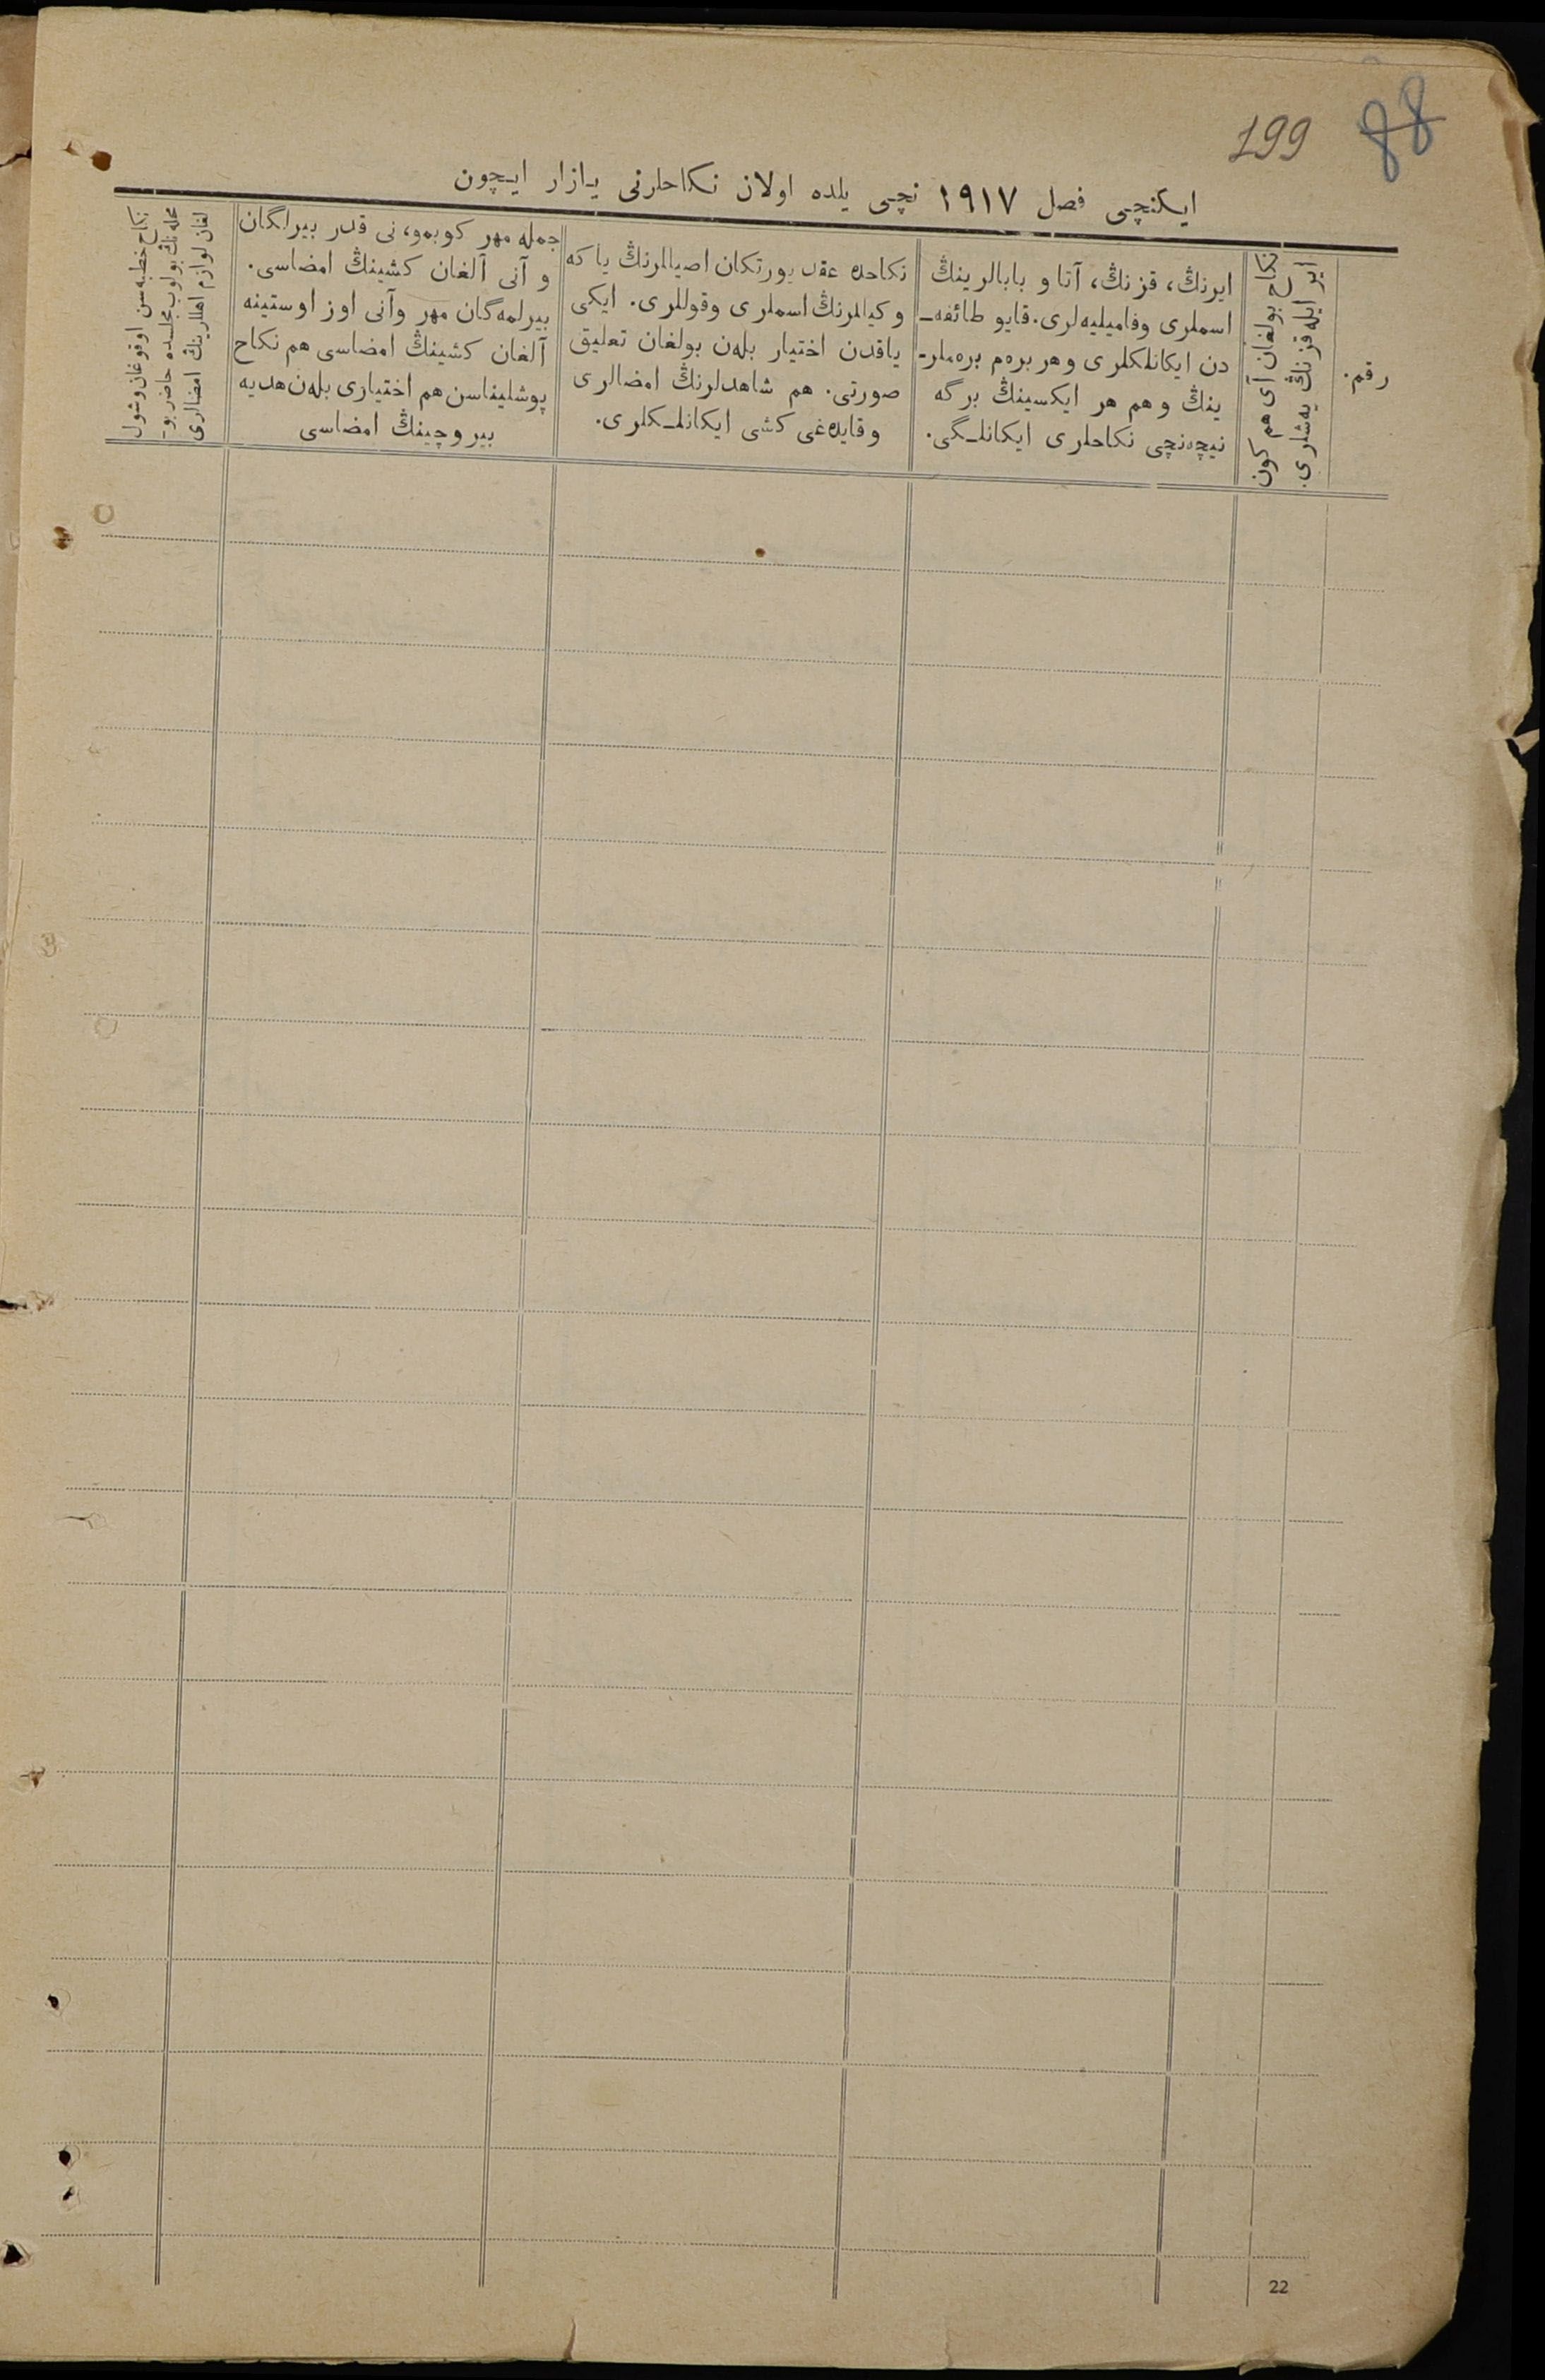 199 88
ایکنچی فصل ۱۹۱۷ نچی یلده اولان نکاحلرنی یازار ایچون
رقم.
ایر ایله قزنڭ یه‌شلری.
نکاح بولغان آی هم کون
ایرنڭ، قزنڭ، آتا و بابالرینڭ
اسملری وفامیلیه‌لری. قایو طائفه‌ـ
دن ایکانلکلری وهر بره‌م بره‌ملرـ
ینڭ وهم هر ایکسینڭ برگه
نیچه‌نچی نکاحلری ایکانلـگی.
نکاحده عقد یورتکان اصیللرنڭ یا که
وکیللرنڭ اسملری وقوللری. ایکی
یاقدن اختیار بله‌ن بولغان تعلیق
صورتی. هم شاهدلرنڭ امضالری
وقایده‌غی کشی ایکانلـکلری.
جمله مهر کوبمو، نی قدر بیرلگان
و آنی آلغان کشینڭ امضاسی.
بیرلمه‌گان مهر وآنی اوز اوستینه
آلغان کشینڭ امضاسی هم نکاح
پوشلیناسن هم اختیاری بله‌ن هدیه
بیروچینڭ امضاسی
نکاح خطبه‌سن اوقوغان وشول
محله‌نڭ بولوب مجلسده حاضر بوـ
لغان لوازم اهللرینڭ امضالری
22